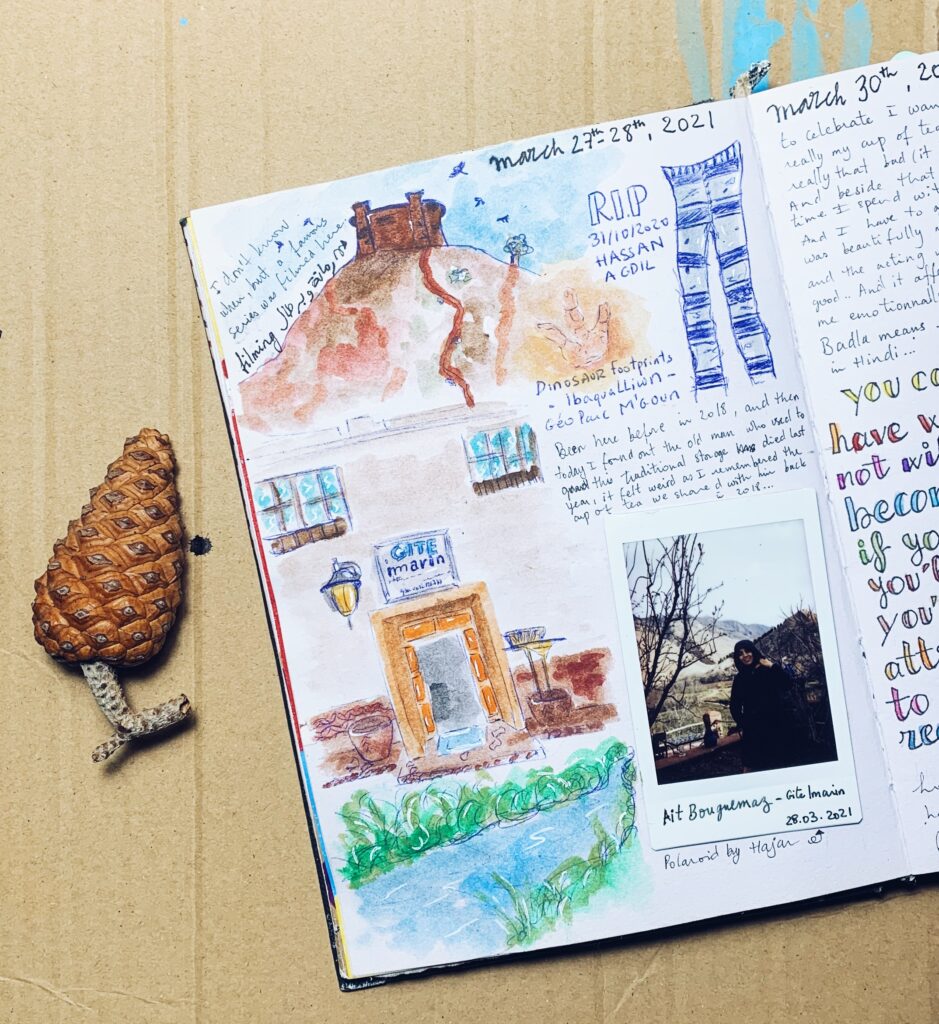 march 27th-28th, 2021
I don't know
when but a famous
series was filmed here
filming رمانة و برطال
R.I.P
31/10/2020
HASSAN
AGDIL
Dinosaur footprints
- Ibaqualliwn -
Géo Parc M'Goun
Been here before in 2018, and then
today I found out the old man who used to
guard this traditional storage has died last
year, it felt weird as I remembered the
cup of tea we shared with him back
in 2018...
GITE
imarin
Ait Bouguemaz - Gite Imarin
28.03.2021
Polaroid by Hajar
march 30th, 20
to celebrate I wan
really my cup of tea
really that bad (it
And beside that
time I spend wit
And I have to a
was beautifully
and the acting
good.. And it aff
me emotionnall
Badla means
in Hindi...
you ca
have w
not wi
becom
if yo
you'l
you'
atta
to
rea